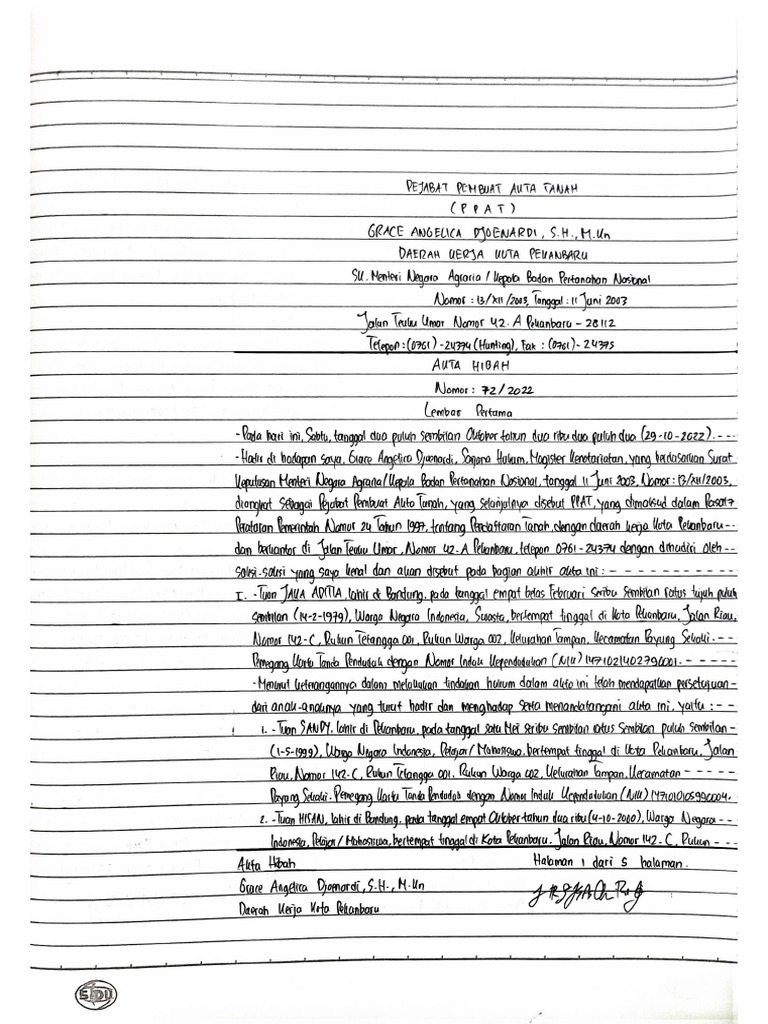 PEJABAT PEMBUAT AKTA TANAH
(PPAT)
GRACE ANGELICA DJOENARDI, S.H., M.Kn
DAERAH KERJA KOTA PEKANBARU
SK. Menteri Negara Agraria / Kepala Badan Pertanahan Nasional
Nomor : 13/XII/2003, Tanggal : 11 Juni 2003
Jalan Teuku Umar Nomor 42. A Pekanbaru - 28112
Telepon : (0761) - 24374 (Hunting), Fak : (0761) - 24375
AKTA HIBAH
Nomor : 72/2022
Lembar Pertama
- Pada hari ini, Sabtu, tanggal dua puluh sembilan Oktober tahun dua ribu dua puluh dua (29-10-2022). - - -
- Hadir di hadapan saya, Grace Angelica Djoenardi, Sarjana Hukum, Magister Kenotariatan, yang berdasarkan Surat
Keputusan Menteri Negara Agraria / Kepala Badan Pertanahan Nasional, tanggal 11 Juni 2003, Nomor : 13/XII/2003,
diangkat sebagai Pejabat Pembuat Akta Tanah, yang selanjutnya disebut PPAT, yang dimaksud dalam Pasal 7
Peraturan Pemerintah Nomor 24 Tahun 1997, tentang Pendaftaran Tanah, dengan daerah kerja Kota Pekanbaru - -
dan berkantor di Jalan Teuku Umar, Nomor 42. A Pekanbaru, telepon 0761 - 24374 dengan dihadiri oleh -
saksi-saksi yang saya kenal dan akan disebut pada bagian akhir akta ini : - - - - - - - - - -
I. - Tuan JAKA ADITIA, lahir di Bandung, pada tanggal empat belas Februari seribu sembilan ratus tujuh puluh
sembilan (14-2-1979), Warga Negara Indonesia, Swasta, bertempat tinggal di Kota Pekanbaru, Jalan Riau,
Nomor 142-C, Rukun Tetangga 001, Rukun Warga 002, Kelurahan Tampan, Kecamatan Payung Sekaki. - - -
Pemegang Kartu Tanda Penduduk dengan Nomor Induk Kependudukan (NIK) 1471021402790001. - - - - -
- Menurut keterangannya dalam melakukan tindakan hukum dalam akta ini telah mendapatkan persetujuan -
dari anak-anaknya yang turut hadir dan menghadap serta menandatangani akta ini, yaitu : - - - -
1. - Tuan SANDY, lahir di Pekanbaru, pada tanggal satu Mei seribu sembilan ratus sembilan puluh sembilan -
(1-5-1999), Warga Negara Indonesia, Pelajar / Mahasiswa, bertempat tinggal di Kota Pekanbaru, Jalan
Riau, Nomor 142-C, Rukun Tetangga 001, Rukun Warga 002, Kelurahan Tampan, Kecamatan - - - - - -
Payung Sekaki. Pemegang Kartu Tanda Penduduk dengan Nomor Induk Kependudukan (NIK) 1471010105990004.
2. - Tuan HISAN, lahir di Bandung, pada tanggal empat Oktober tahun dua ribu (4-10-2000), Warga Negara -
Indonesia, Pelajar / Mahasiswa, bertempat tinggal di Kota Pekanbaru. Jalan Riau, Nomor 142. C, Rukun -
Akta Hibah Halaman 1 dari 5 halaman.
Grace Angelica Djoenardi, S.H., M.Kn
Daerah Kerja Kota Pekanbaru